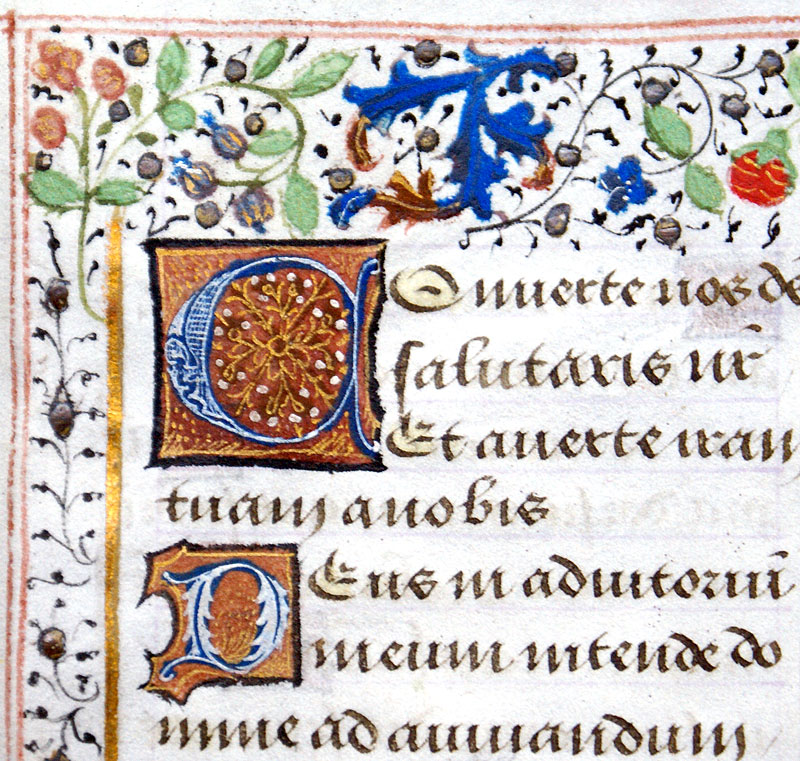 COnuerte nos de᷒
salutaris nr̃
Et auerte iram
tuam a nobis
DEus in adiutoriũ
meum intende do
mine ad adiuuandum